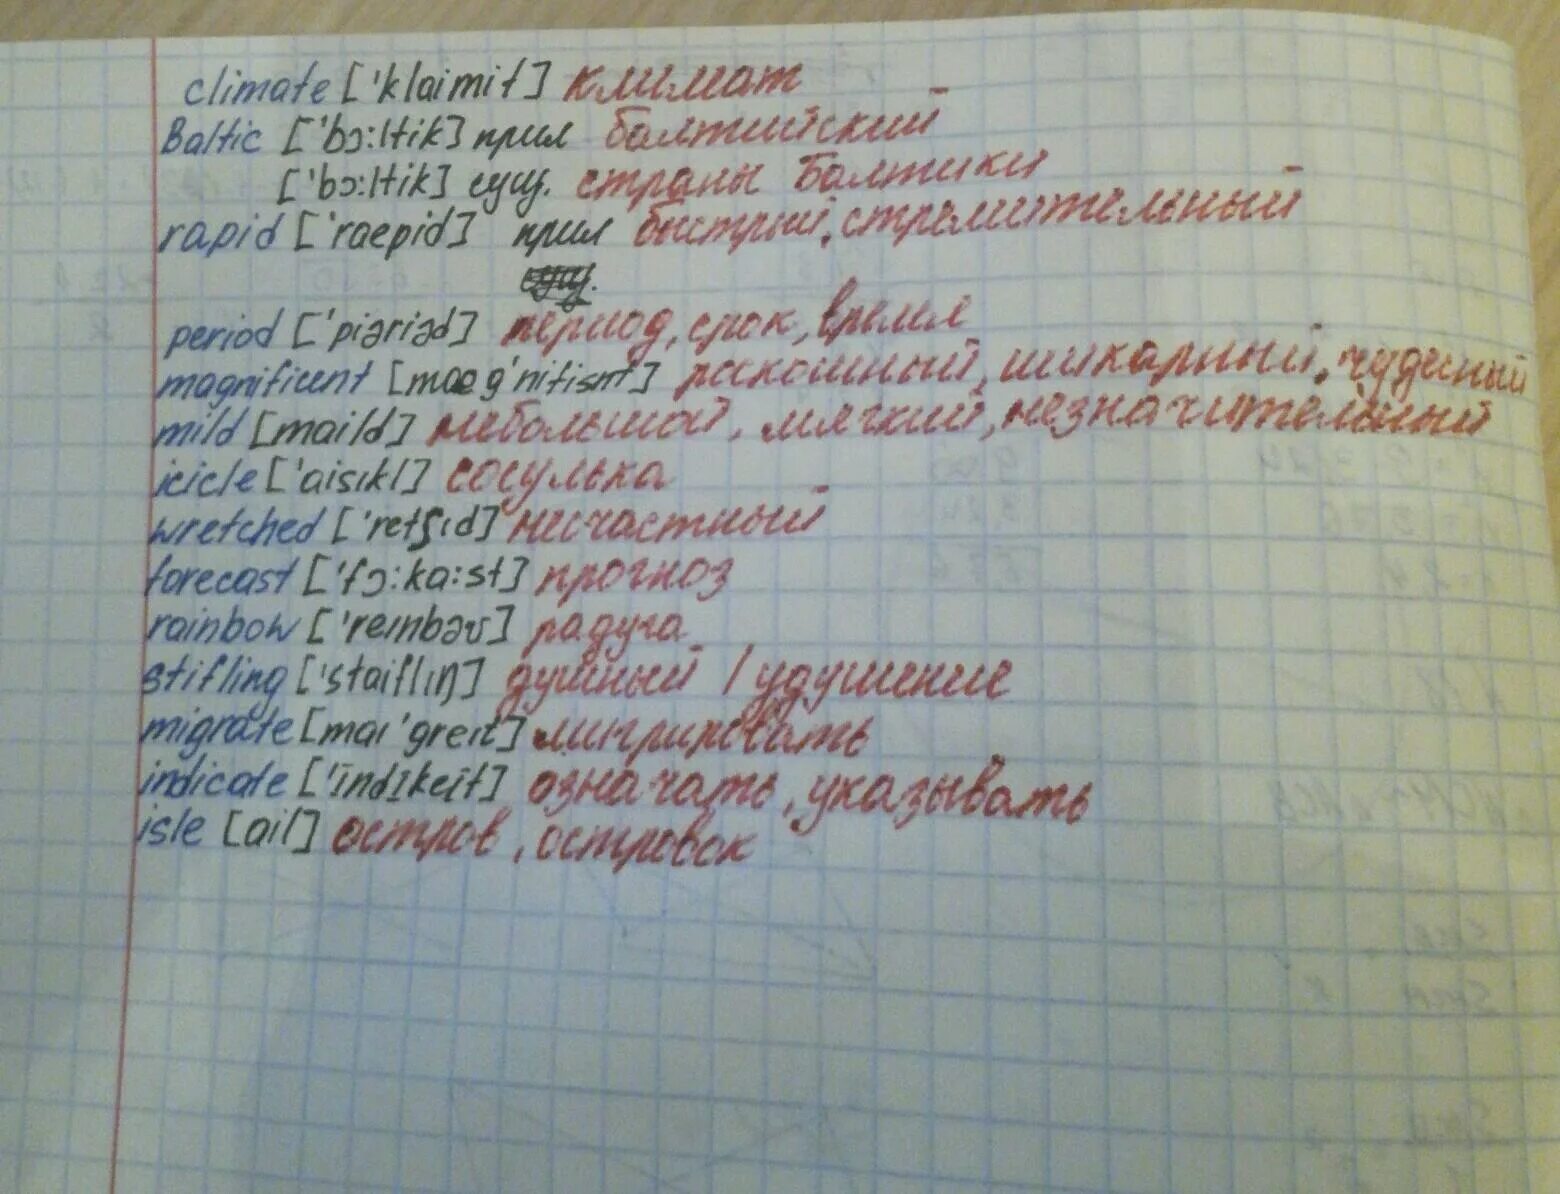 climate ['klaimit] климат
Baltic ['bɔ:ltik] прил балтийский
['bɔ:ltik] сущ. страны Балтики
rapid ['raepid] прил быстрый, стремительный
period ['piəriəd] период, срок, время
magnificent [maeg'nifisnt] роскошный, шикарный, чудесный
mild [maild] небольшой, мягкий, незначительный
icicle ['aisıkl] сосулька
wretched ['retʃıd] несчастный
forecast ['fɔ:ka:st] прогноз
rainbow ['reınbəʊ] радуга
stifling ['staiflıŋ] душный / удушение
migrate [maı'greıt] мигрировать
indicate ['ındıkeıt] означать, указывать
isle [ail] остров, островок